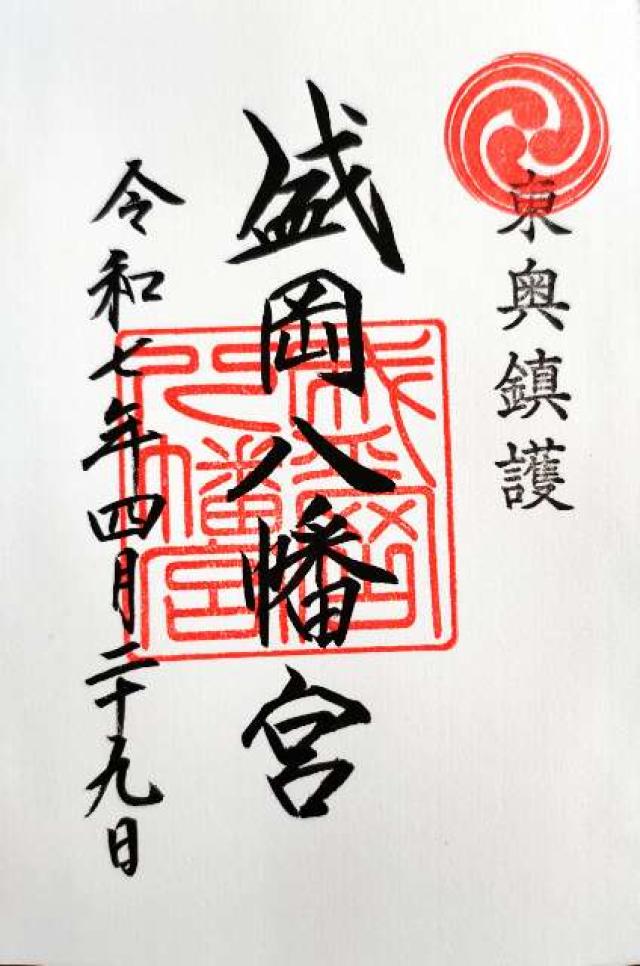 東奥鎮護
盛岡八幡宮
令和七年四月二十九日
盛岡八幡宮